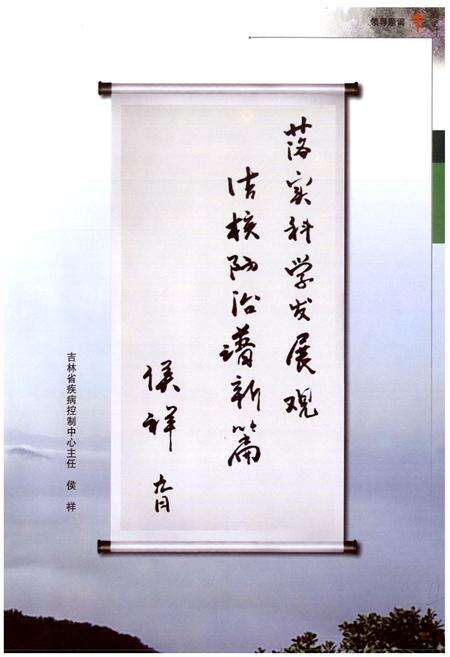 领导题词
落实科学发展观
结核防治谱新篇
侯祥 九月
吉林省疾病控制中心主任 侯祥